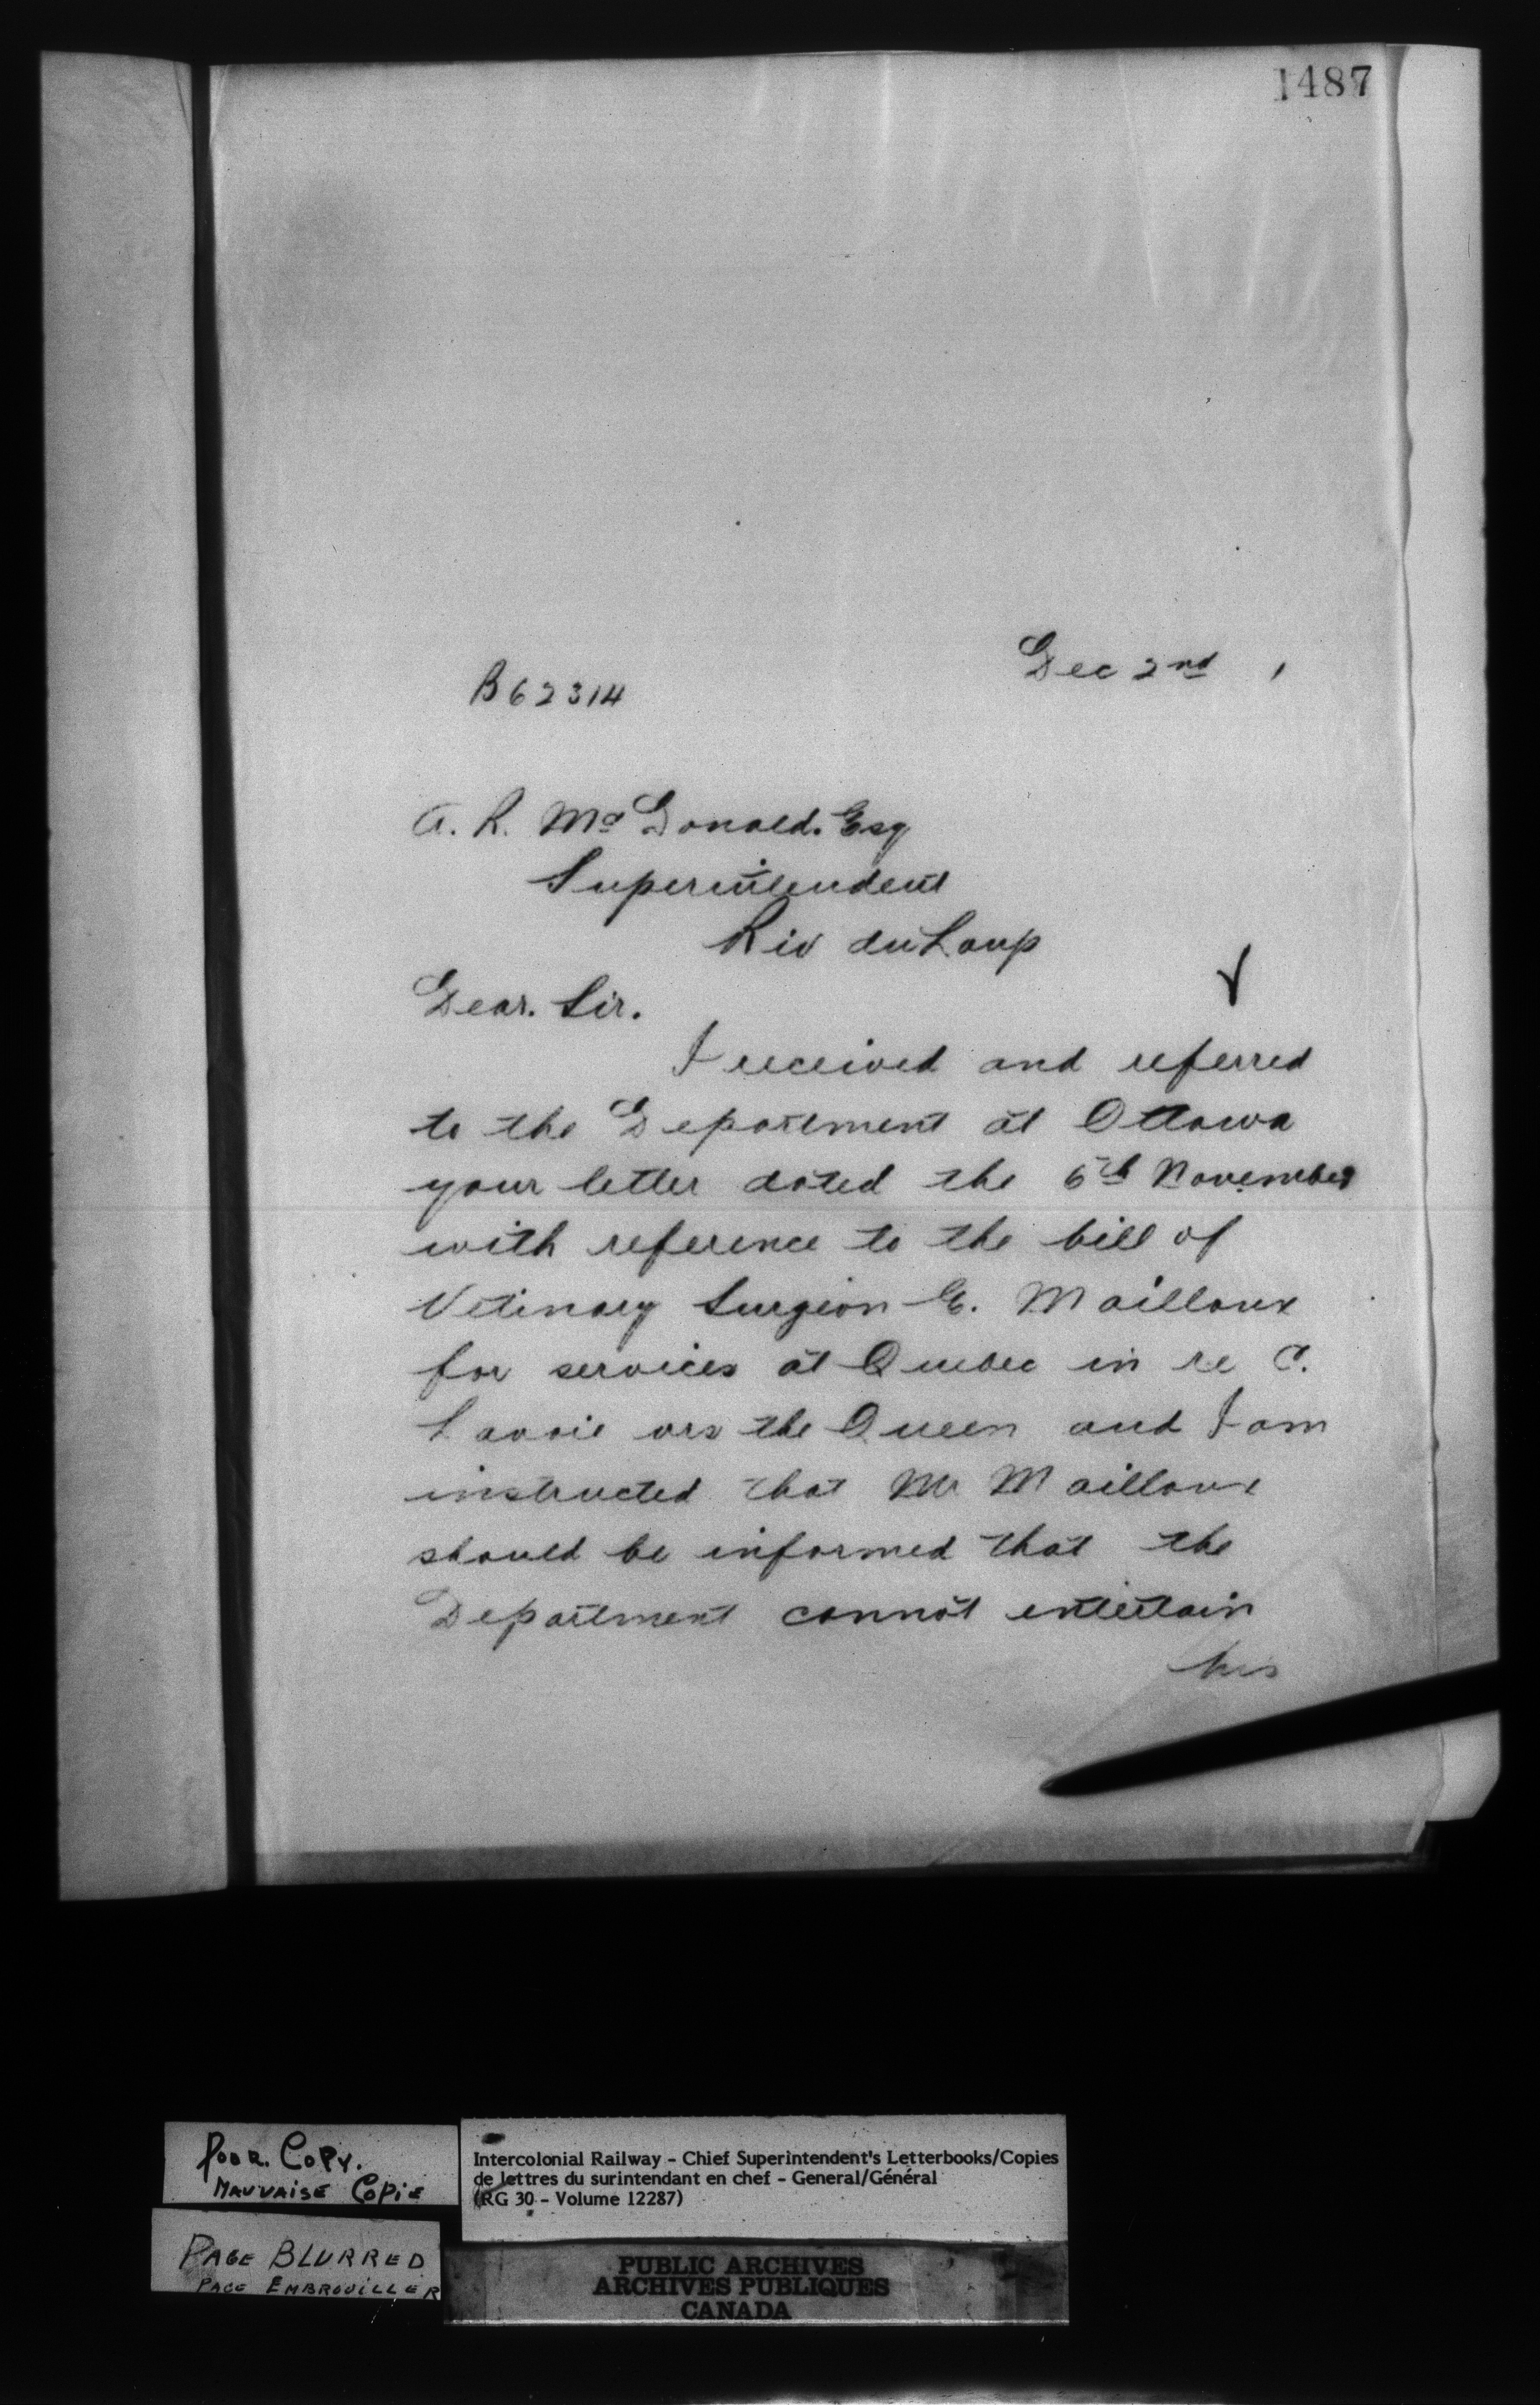 1487
Dec 2nd
B62314
A. R. McDonald. Esq
Superintendent
Riv du Loup
Dear. Sir.
I received and referred
to the Department at Ottawa
your letter dated the 6th November
with reference to the bill of
Vetinary Surgeon E. Mailloux
for services at Quebec in re C.
Lavoie vrs the Queen and I am
instructed that Mr Mailloux
should be informed that the
Department cannot entertain
his
Poor. Copy.
Mauvaise Copie
Page Blurred
Page Embrouiller
Intercolonial Railway - Chief Superintendent's Letterbooks/Copies
de lettres du surintendant en chef - General/Général
(RG 30 - Volume 12287)
PUBLIC ARCHIVES
ARCHIVES PUBLIQUES
CANADA